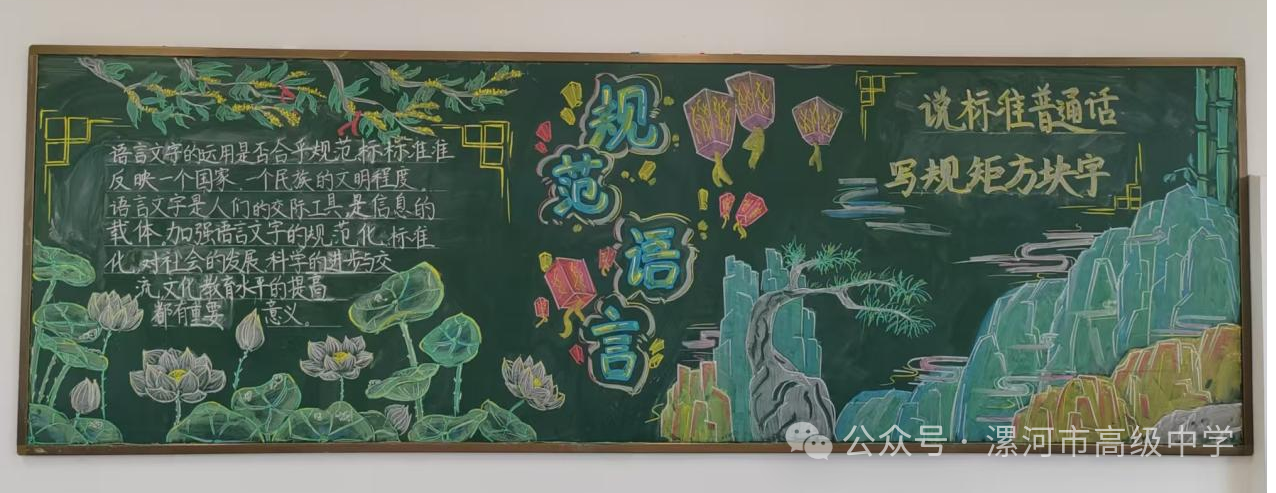 语言文字的运用是否合乎规范、标标准准
反映一个国家、一个民族的文明程度。
语言文字是人们的交际工具,是信息的
载体,加强语言文字的规范化、标准
化,对社会的发展、科学的进步与交
流、文化教育水平的提高
都有重要 意义。
规
范
语
言
说标准普通话
写规矩方块字
公众号·漯河市高级中学